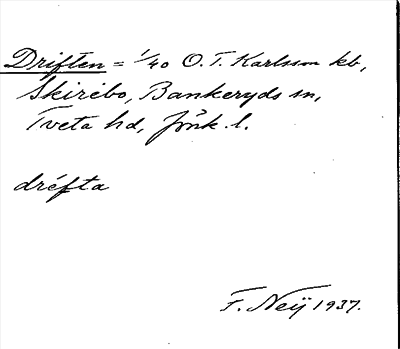 Driften = 1/40 O. T. Karlsson kb,
Skirebo, Bankeryds sn,
Tveta hd, Jönk. l.
dréfta
F. Neij 1937.